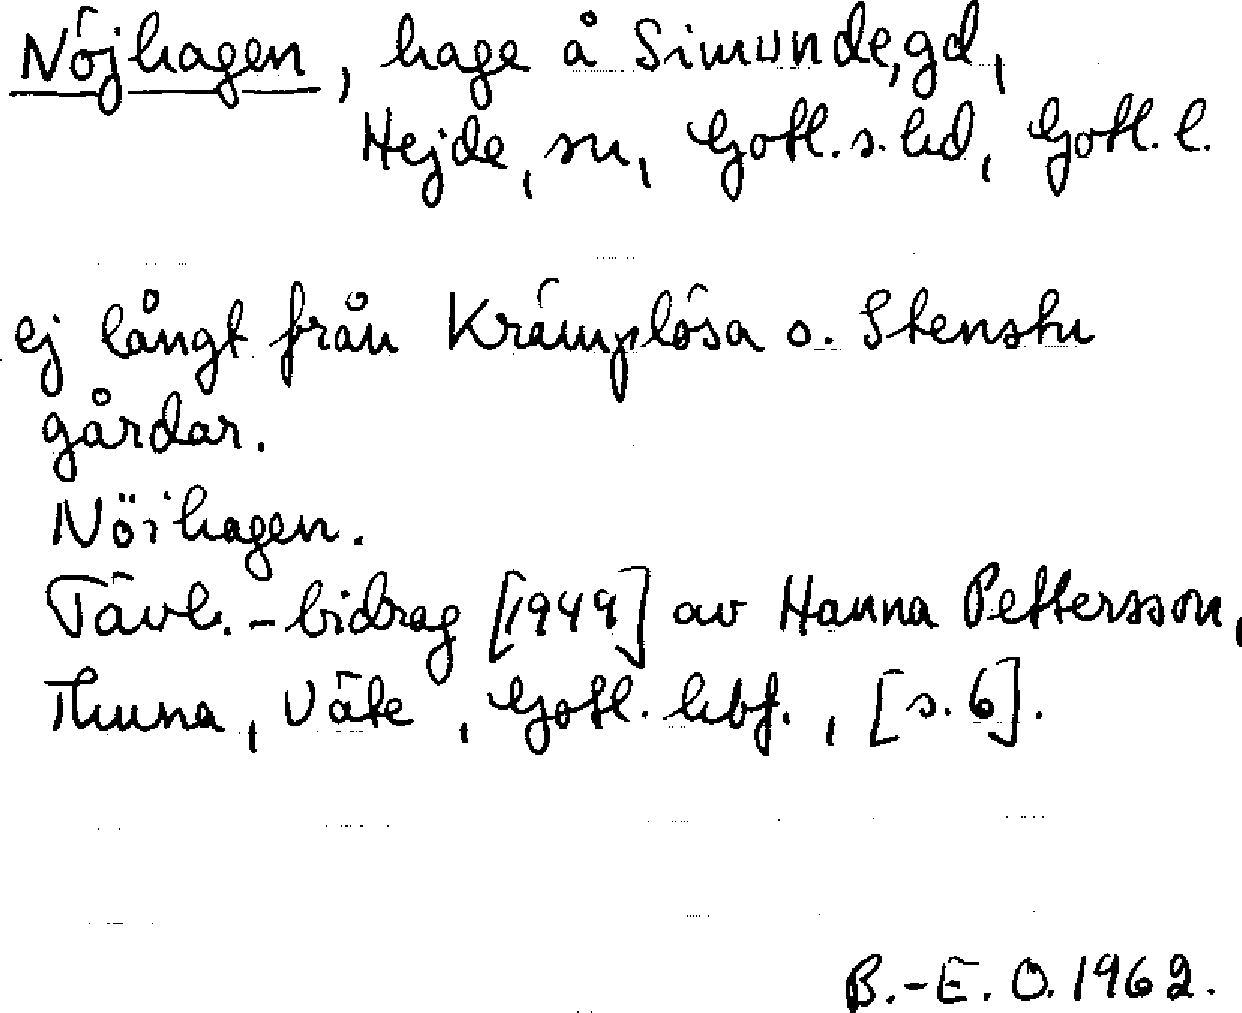 Nöjhagen, hage å Simunde, gd,
Hejde, sn, Gotl. s. hd, Gotl. l.
ej långt från Krämplösa o. Stenstu
gårdar.
Nöihagen.
Tävl.-bidrag [1949] av Hanna Pettersson,
Thuna, Väte, Gotl. hbf., [s. 6].
B.-E. O. 1962.